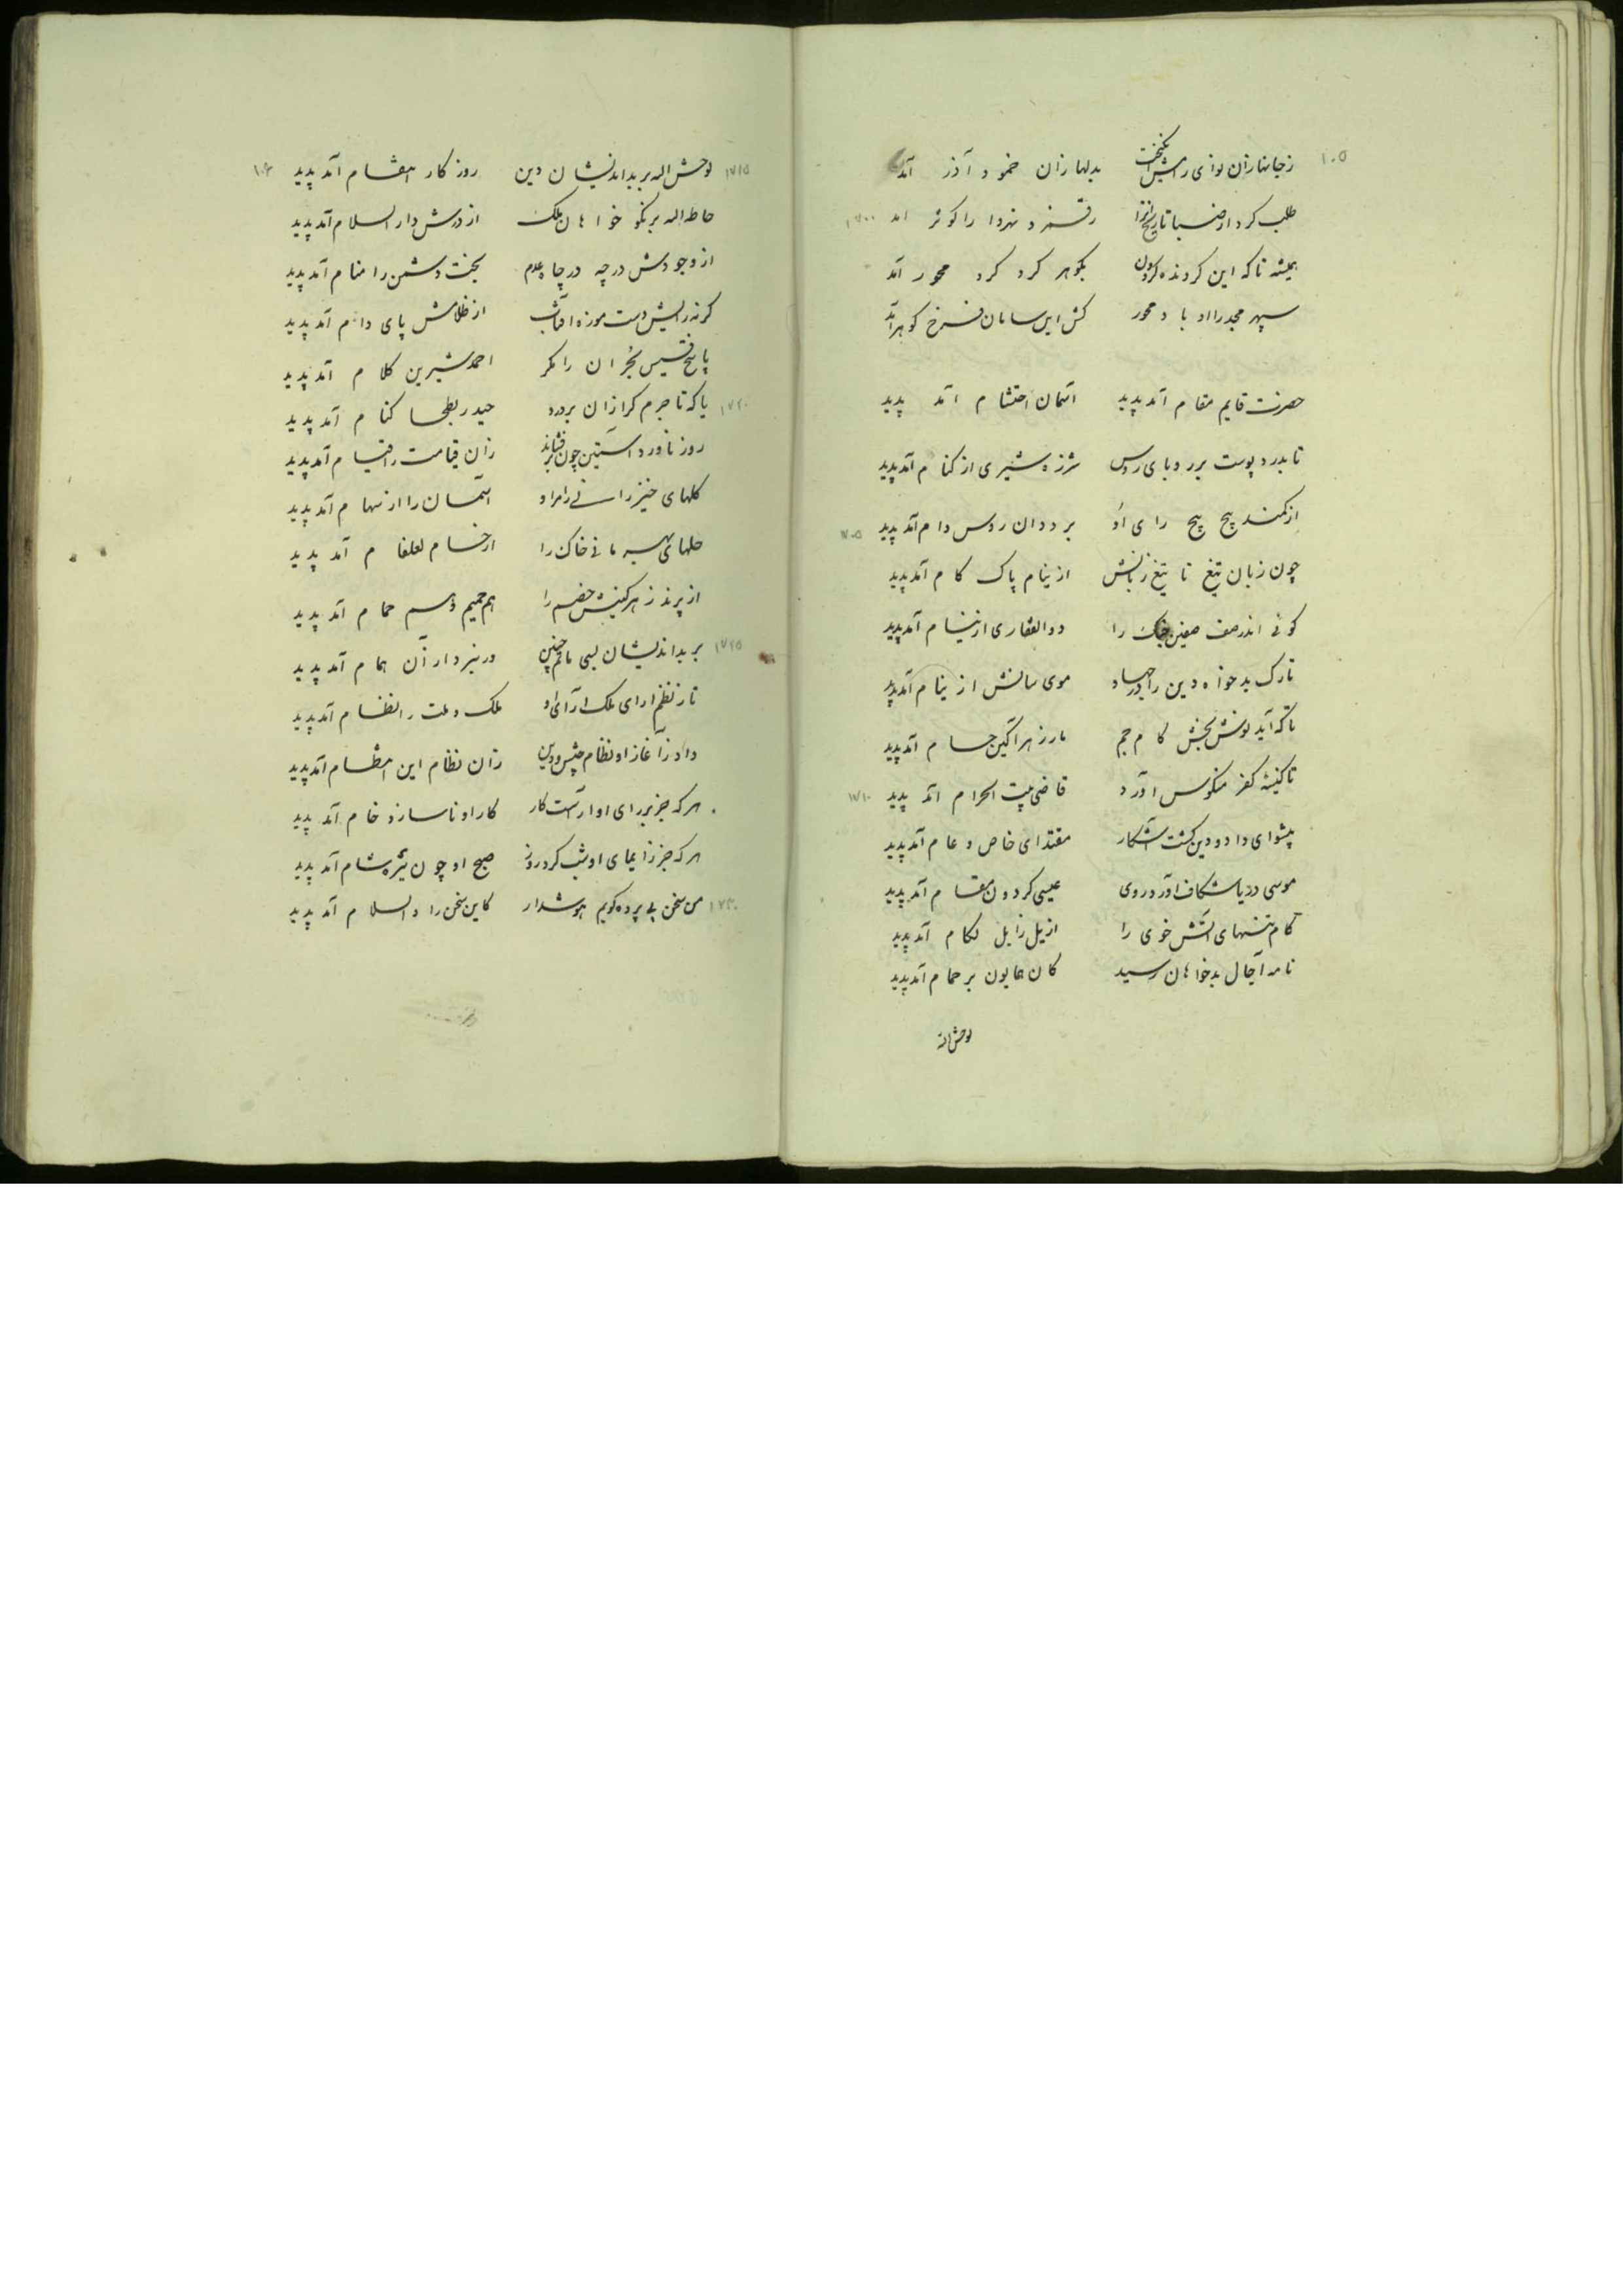 ۱۰۵
زجانها زان نوای رامش انگیخت بدلها زان خمود آذر آمد
طلب کرد از صبا تاریخ آنرا رقم زد نهر دارا کوثر آمد ۱۷۰۰
همیشه تا که این گردنده گردون بگوهر گرد گرد محور آمد
سپهر مجد را او باد محور کش این سامان فرخ گوهر آمد
حضرت قایم مقام آمد پدید آسمان احتشام آمد پدید
تا بدرد پوست بر روباه روس شرزه شیری از کنام آمد پدید
از کمند پیچ پیچ رای او بر ددان روس دام آمد پدید ۱۷۰۵
چون زبان تیغ تا تیغ زبانش از نیام پاک کام آمد پدید
گوئی اندر صف صفین جنگ را ذوالفقاری از نیام آمد پدید
تارک بدخواه دین را در جهاد موی سانش از نیام آمد پدید
تا که آید نوش بخش کام جم مار زهر آگین حسام آمد پدید
تا کنیسه کفر منکوس آورد قاضی بیت الحرام آمد پدید ۱۷۱۰
پیشوای داد و دین گشت آشکار مقتدای خاص و عام آمد پدید
موسی دریا شکاف آورد روی عیسی گردون مقام آمد پدید
کام تنهای آتش خوی را از پل زابل لکام آمد پدید
نامه آجال بدخواهان رسید کان همایون بر حمام آمد پدید
لوحش الله
۱۷۱۵ لوحش الله بر بداندیشان دین روزگار انتقام آمد پدید ۱۰۶
حاطه الله بر نکو خواهان ملک از درش دار السلام آمد پدید
از وجودش در چه در چاه عدم بخت دشمن را منام آمد پدید
گرنه رایش دست موزه آفتاب از ظلامش پای دام آمد پدید
پاسخ قسیس نجران را مگر احمد شیرین کلام آمد پدید
۱۷۲۰ یا که تا چرم گرازان بردرد حیدر بطحا کنام آمد پدید
روز ناورد آستین چون برفشاند زان قیامت را قیام آمد پدید
گلهای خیزرانی را مر او آسمان را از سهام آمد پدید
حلهای بهرمانی خاک را از حسام لعلفام آمد پدید
از پرند زهر کینش خصم را هم حمیم و هم حمام آمد پدید
۱۷۲۵ بر بداندیشان بسی ماتم چنین در نبرد از آن همام آمد پدید
تا ز نظم آرای ملک آرای او ملک و ملت را نظام آمد پدید
داد ز آغاز او نظام جیش و دین زان نظام این انتظام آمد پدید
هر که جز بر رای او آراست کار کار او ناساز و خام آمد پدید
هر که جز زایمای او شب کرد روز صبح او چون تیره شام آمد پدید
۱۷۳۰ من سخن بی پرده گویم هوشدار کاین سخن را والسلام آمد پدید